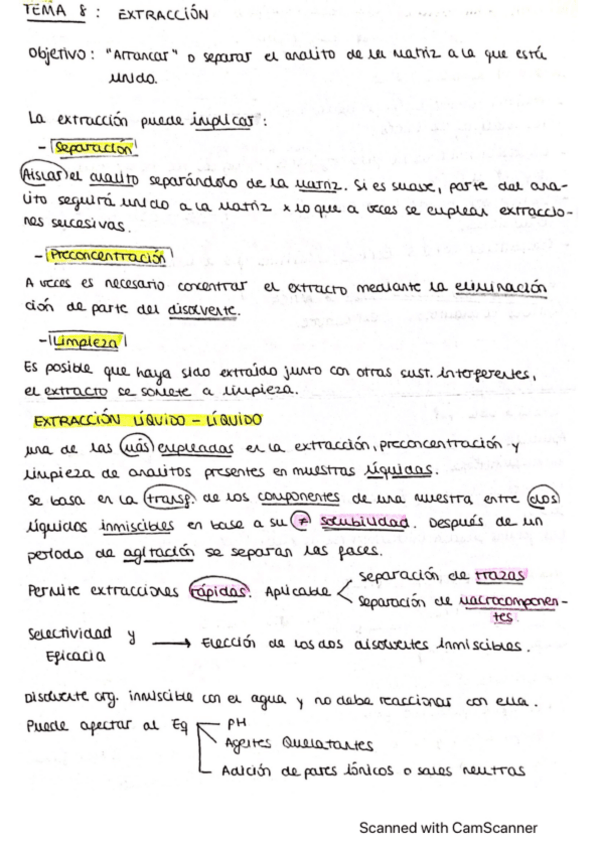 TEMA 8 : EXTRACCIÓN
Objetivo : "Arrancar" o separar el analito de la matriz a la que está
unido.
La extracción puede implicar :
- Separación
Aislar el analito separándolo de la matriz. Si es suave, parte del ana-
lito seguirá unido a la matriz x lo que a veces se emplean extraccio-
nes sucesivas.
- Preconcentración
A veces es necesario concentrar el extracto mediante la eliminación
ción de parte del disolvente.
- Limpieza
Es posible que haya sido extraído junto con otras sust. interferentes,
el extracto se somete a limpieza.
EXTRACCIÓN LÍQUIDO - LÍQUIDO
una de las más empleadas en la extracción, preconcentración y
limpieza de analitos presentes en muestras líquidas.
Se basa en la transf. de los componentes de una muestra entre dos
líquidos inmiscibles en base a su ≠ solubilidad. Después de un
período de agitación se separan las fases.
Permite extracciones rápidas. Aplicable < separación de trazas
separación de macrocomponen-
tes.
Selectividad y
Eficacia → Elección de los dos disolventes inmiscibles.
Disolvente org. inmiscible con el agua y no debe reaccionar con ella.
Puede afectar al Eq - PH
- Agentes Quelatantes
- Adición de pares iónicos o sales neutras
Scanned with CamScanner